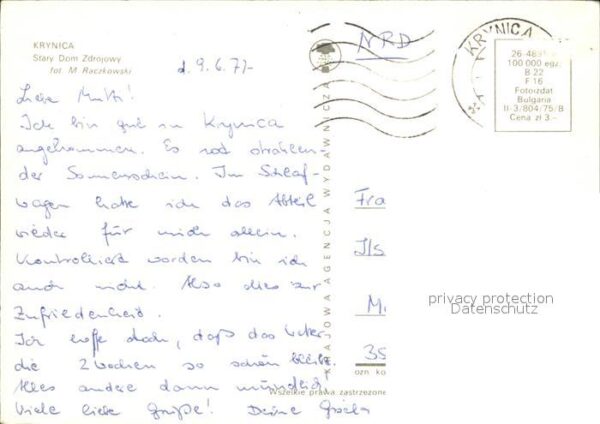 KRYNICA
Stary Dom Zdrojowy
fot. M. Raczkowski
d. 9.6.77-
Liebe Mutti!
Ich bin gut in Krynica
angekommen. Es ist strahlen-
der Sonnenschein. Im Schlaf-
wagen hatte ich das Abteil
wieder für mich allein.
Kontrolliert worden bin ich
auch nicht. Also alles zur
Zufriedenheit.
Ich hoffe doch, daß das Wetter
die 2 Wochen so schön bleibt.
Alles andere dann mündlich!
Viele liebe Grüße! Deine
KRAJOWA AGENCJA WYDAWNICZA
NRD
KRYNICA
100 000 egz.
B 22
F 16
Fotoizdat
Bulgaria
II-3/804/75/B
Cena zł 3.-
Fra
Ils
M
35
privacy protection
Datenschutz
ozn ko
Wszelkie prawa zastrzeżone